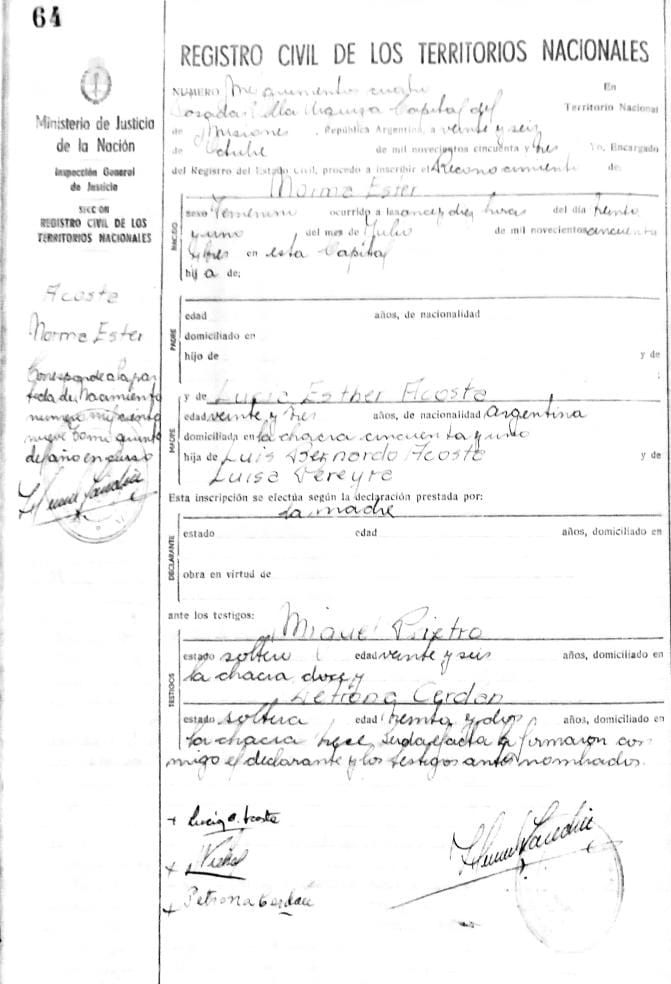 64
Ministerio de Justicia
de la Nación
Inspección General
de Justicia
SECCION
REGISTRO CIVIL DE LOS
TERRITORIOS NACIONALES
Acosta
Norma Ester
Corresponde a la par
tida de Nacimiento
numero mil ciento
nueve tomo quinto
del año en curso
REGISTRO CIVIL DE LOS TERRITORIOS NACIONALES
NUMERO Mil quinientos cuatro En
Posadas Villa Urquiza Capital del Territorio Nacional
de Misiones, República Argentina, a veinte y seis
de Octubre de mil novecientos cincuenta y tres Yo, Encargado
del Registro del Estado Civil, procedo a inscribir el Reconocimiento de:
Norma Ester
NACIDO
sexo Femenino ocurrido a las once y diez horas del día treinta
y uno del mes de Julio de mil novecientos cincuenta
y tres en esta Capital
hij a de:
PADRE
edad años, de nacionalidad
domiciliado en
hijo de y de
MADRE
y de Lucia Esther Acosta
edad veinte y tres años, de nacionalidad Argentina
domiciliada en la chacra cincuenta y uno
hija de Luis Bernardo Acosta y de
Luisa Pereyra
Esta inscripción se efectúa según la declaración prestada por:
la madre
DECLARANTE
estado edad años, domiciliado en
obra en virtud de
ante los testigos:
Miguel Prietro
TESTIGOS
estado soltero edad veinte y seis años, domiciliado en
la chacra doce y
Petrona Cerdan
estado soltera edad treinta y dos años, domiciliado en
la chacra trece, leida el acta la firmaron con
migo el declarante y los testigos antes nombrados.
+ Lucia E. Acosta
+
+ Petrona Cerdan